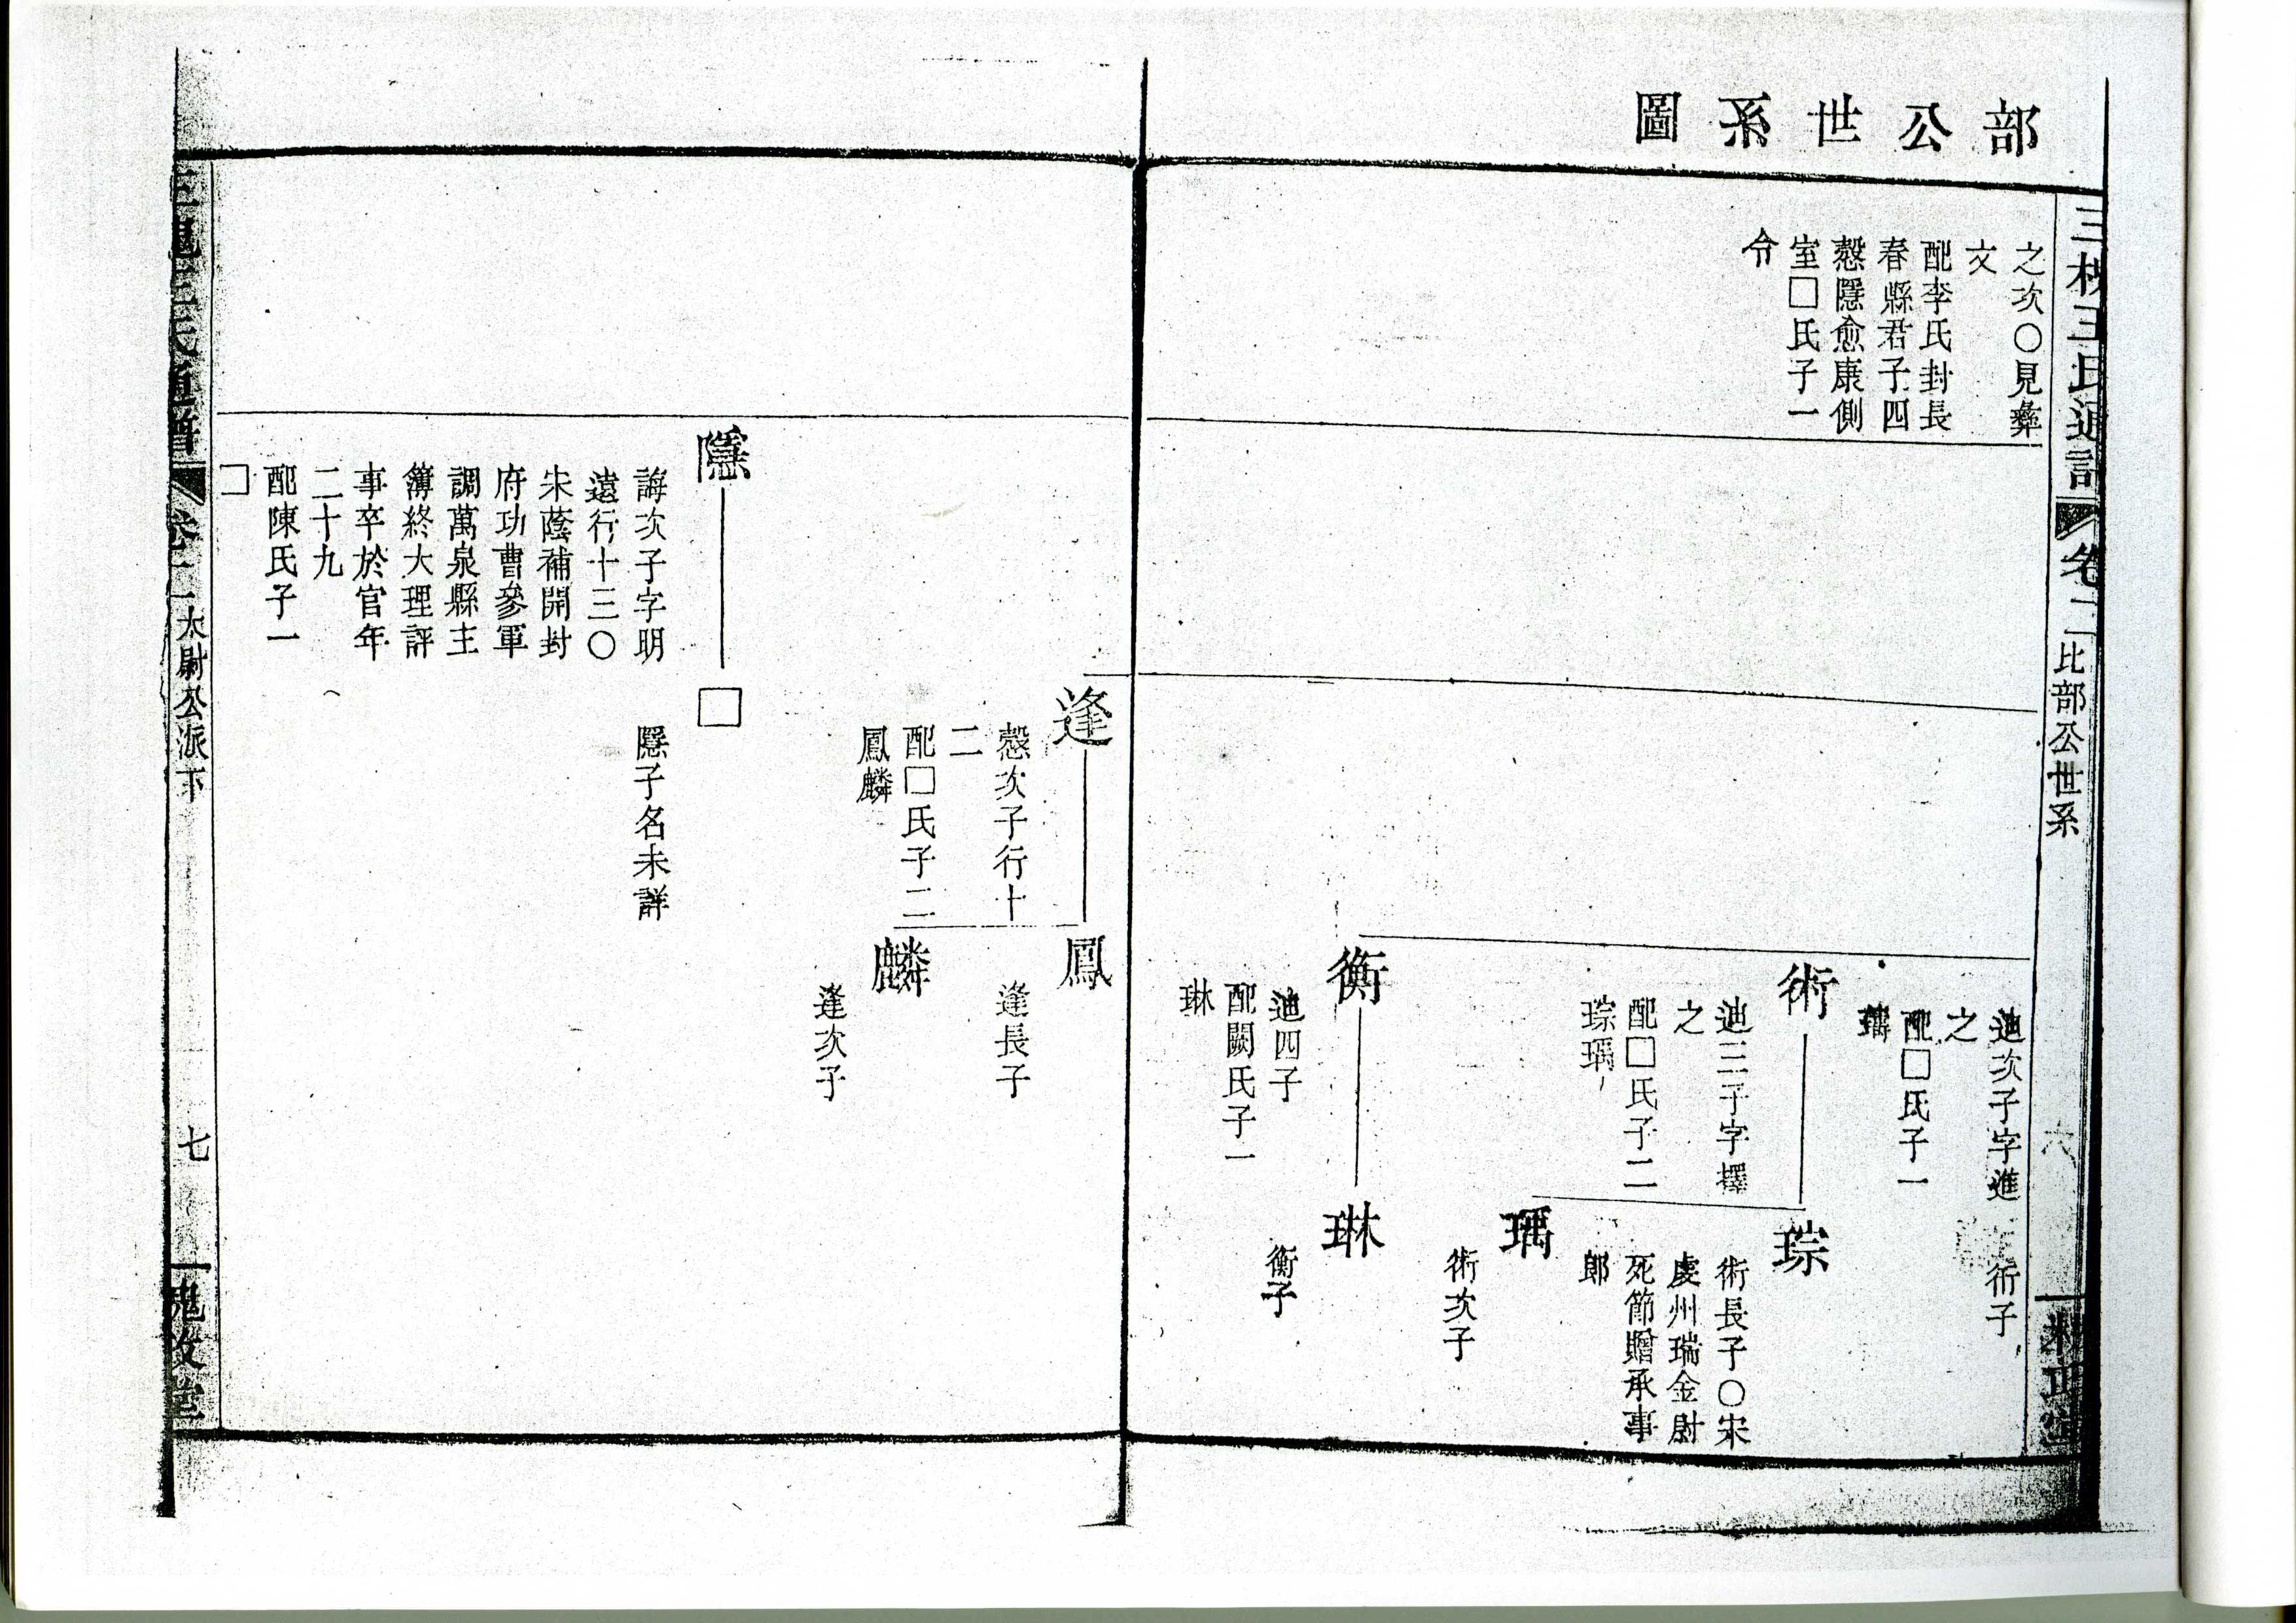 部公世系圖
三槐王氏通譜
卷十二
比部公世系
六
之次○見彝
文
配李氏封長
春縣君子四
愨隱愈康側
室□氏子一
令
迪次子字進
之
配□氏子一
璹
術
迪三子字擇
之
配□氏子二
琮瑀
衡
迪四子
配闕氏子一
琳
衎子
琮
術長子○宋
虔州瑞金尉
死節贈承事
郎
瑀
術次子
琳
衡子
隱
誨次子字明
遠行十三○
宋蔭補開封
府功曹參軍
調萬泉縣主
簿終大理評
事卒於官年
二十九
配陳氏子一
□
逢
愨次子行十
二
配□氏子二
鳳麟
□
隱子名未詳
鳳
逢長子
麟
逢次子
三槐王氏通譜
大尉公派下
七
槐政堂